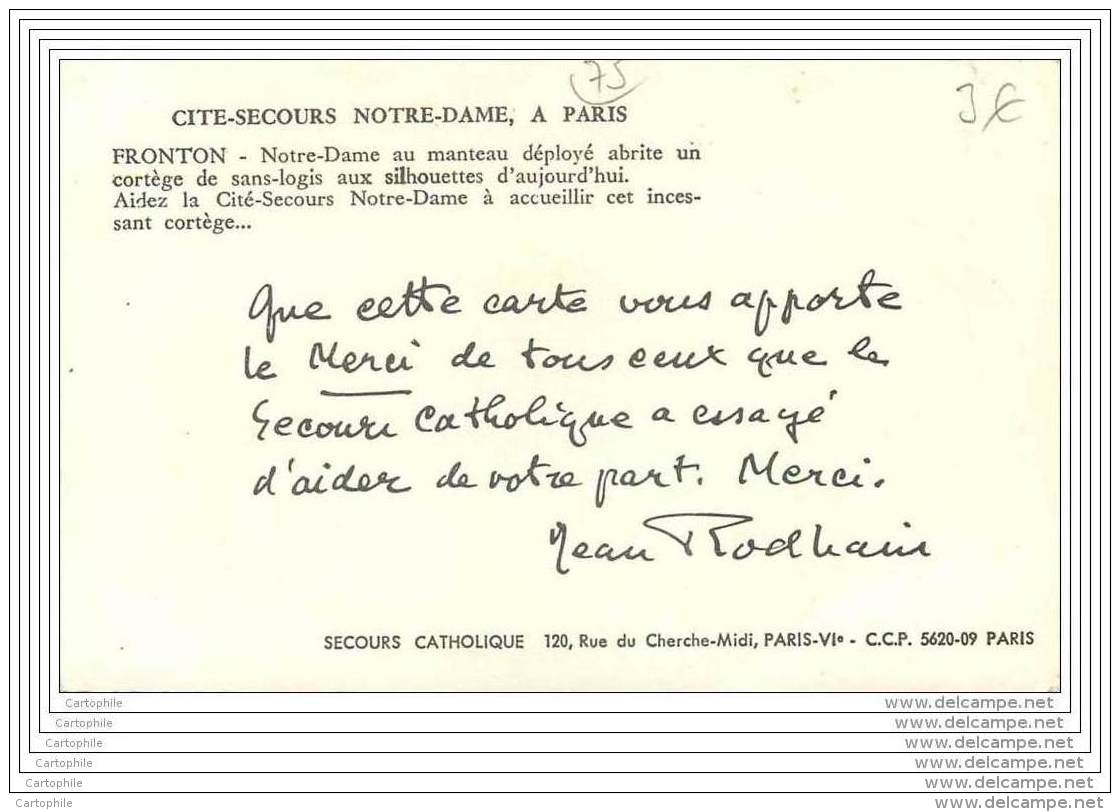 75
3€
CITE-SECOURS NOTRE-DAME, A PARIS
FRONTON - Notre-Dame au manteau déployé abrite un
cortège de sans-logis aux silhouettes d'aujourd'hui.
Aidez la Cité-Secours Notre-Dame à accueillir cet inces-
sant cortège...
Que cette carte vous apporte
le Merci de tous ceux que le
Secours Catholique a essayé
d'aider de votre part. Merci.
Jean Rodhain
SECOURS CATHOLIQUE 120, Rue du Cherche-Midi, PARIS-VIe - C.C.P. 5620-09 PARIS
Cartophile www.delcampe.net
Cartophile www.delcampe.net
Cartophile www.delcampe.net
Cartophile www.delcampe.net
Cartophile www.delcampe.net
Cartophile www.delcampe.net